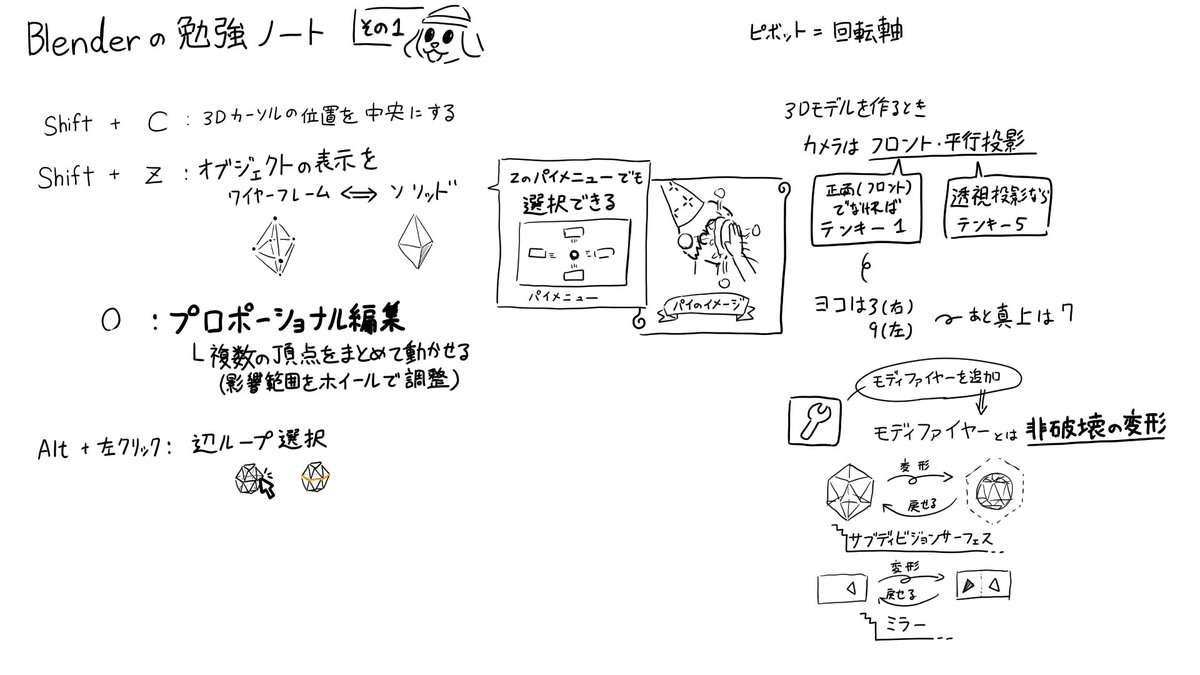 Blenderの勉強ノート
その1
Shift + C : 3Dカーソルの位置を中央にする
Shift + Z : オブジェクトの表示を
ワイヤーフレーム ⇔ ソリッド
Zのパイメニューでも
選択できる
パイメニュー
パイのイメージ
O : プロポーショナル編集
└ 複数の頂点をまとめて動かせる
(影響範囲をホイールで調整)
Alt + 左クリック: 辺ループ選択
ピボット = 回転軸
3Dモデルを作るとき
カメラは フロント・平行投影
正面(フロント)
でなければ
テンキー 1
透視投影なら
テンキー5
ヨコは3(右)
9(左)
あと真上は7
モディファイヤーを追加
モディファイヤーとは 非破壊の変形
変形
戻せる
サブディビジョンサーフェス
変形
戻せる
ミラー